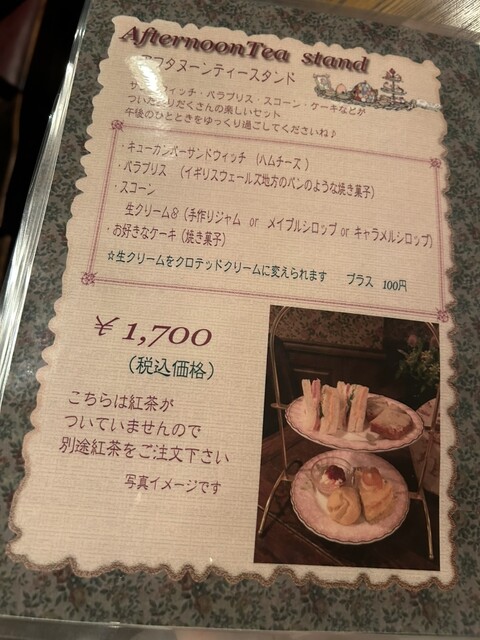 AfternoonTea stand
アフタヌーンティースタンド
サンドウィッチ・バラブリス・スコーン・ケーキなどが
ついたもりだくさんの楽しいセット
午後のひとときをゆっくり過ごしてくださいね♪
・キューカンバーサンドウィッチ (ハムチーズ)
・バラブリス (イギリスウェールズ地方のパンのような焼き菓子)
・スコーン
生クリーム&(手作りジャム or メイプルシロップ or キャラメルシロップ)
・お好きなケーキ(焼き菓子)
☆生クリームをクロテッドクリームに変えられます プラス 100円
￥1,700
(税込価格)
こちらは紅茶が
ついていませんので
別途紅茶をご注文下さい
写真イメージです